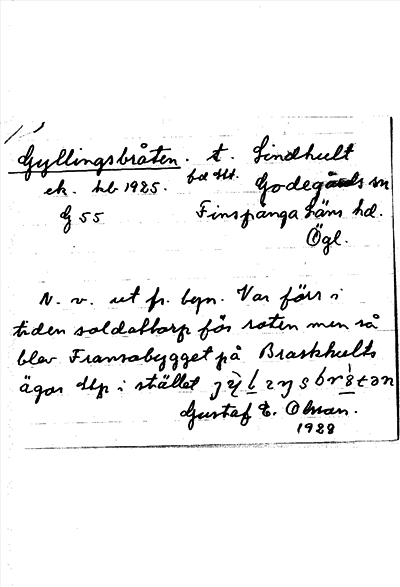 Gyllingsbråten. t. Lindhult
ek. hb 1925. bd stl. Godegårds sn
G 55 Finspånga läns hd.
Ögl.
N. v. ut fr. byn. Var förr i
tiden soldattorp för roten men så
blev Fransabygget på Braskhults
ägor stp i stället
Gustaf E. Olsson.
1928